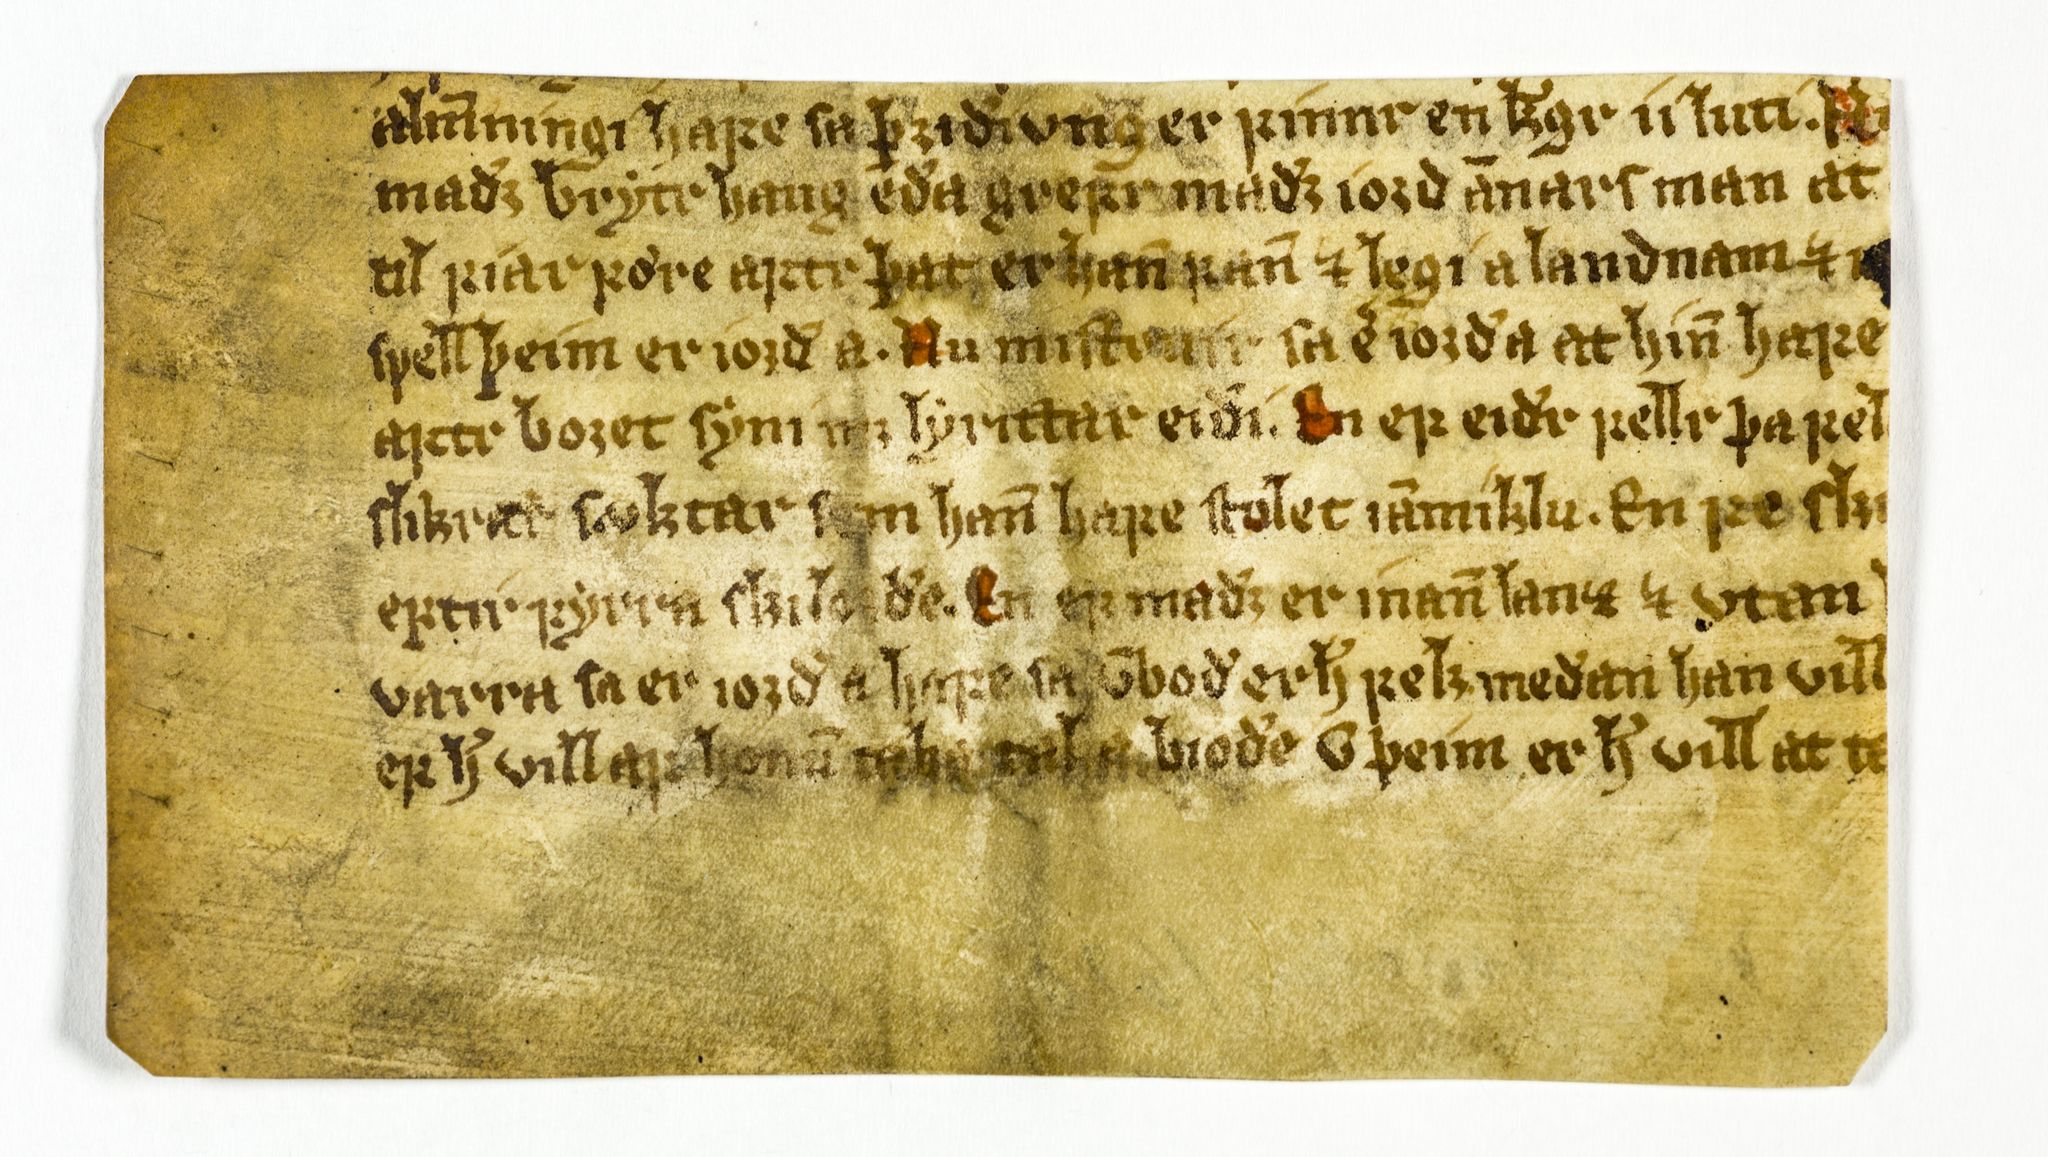 alm̅ningi hafe sa þꝛiðivnger finnr en kgr ii luti. En
maðꝛ brytr haug eða grefr maðꝛ ioꝛd an̅ars man at
til fiar fore aftr þat er han̅ fan̅ ⁊ legi a landnam ⁊
spell þeim er ioꝛð a. Nu mistruir sa er ioꝛð a at hin̅ hafe
aftr boꝛet syni firir lyrittar eiði. En ef eiðr fellr þa fel
slikrar søktar sem han̅ hafe stolet iam̅miklu. En fe ski
eftir fyrra skilorðe. En ef maðꝛ er inan̅ lanz ⁊ vtan
varra sa er ioꝛð a hafe sa v̅boð er h̅ fek meðan han vill
ef h̅ vill af honum̅ bioðe v̅ þeim er h̅ vill at ta